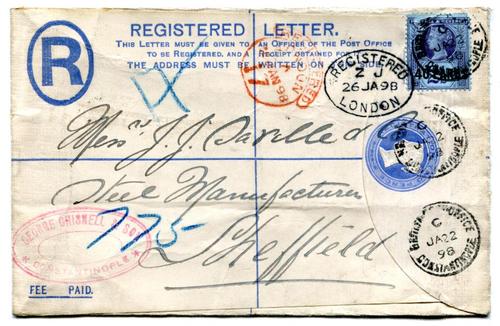 REGISTERED LETTER.
THIS LETTER MUST BE GIVEN TO AN OFFICER OF THE POST OFFICE
TO BE REGISTERED, AND A RECEIPT OBTAINED FOR IT.
THE ADDRESS MUST BE WRITTEN ON
R
REGISTERED
Z J
26 JA 98
LONDON
Messrs J. J. Saville & Co
Steel Manufacturers
Sheffield
775
GEORGE GRISNELL & SON
CONSTANTINOPLE
C
JA 22
98
CONSTANTINOPLE
FEE PAID.